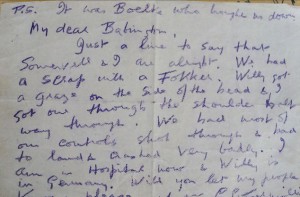 P.S. It was Boelke who brought us down
My dear Babington,
Just a line to say that
Somervill & I are alright. We had
a scrap with a Fokker. Willy got
a graze on the side of the head & I
got one through the shoulder half
way through. We had most of
our controls shot through & had
to land & crashed very badly. I
am in Hospital now & Willy is
in Germany. Will you let my people